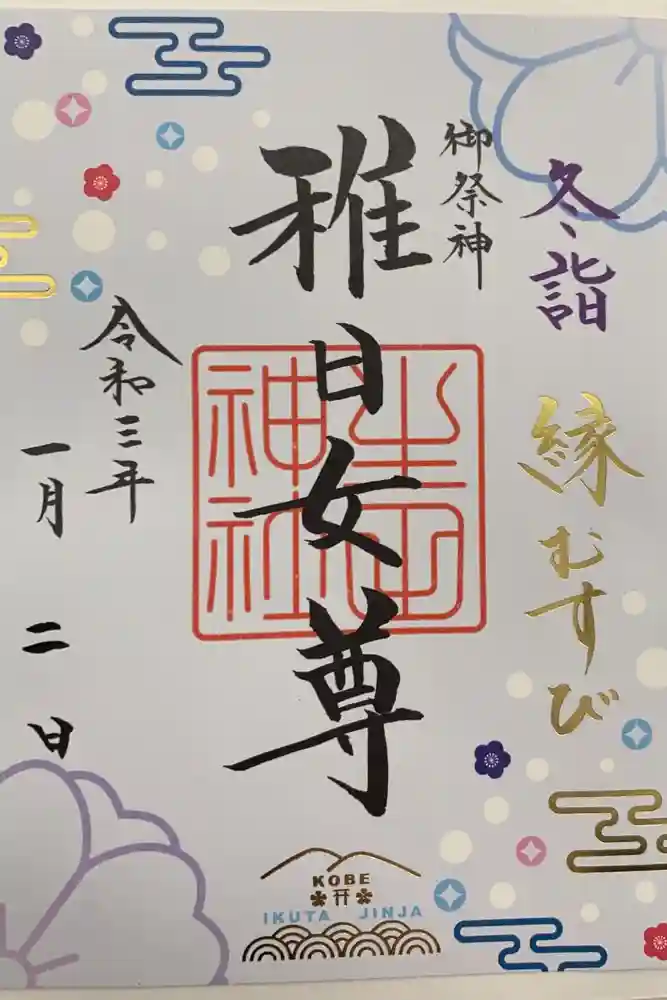 冬詣 縁むすび
御祭神
稚日女尊
生田神社
令和三年
一月 二 日
KOBE
IKUTA JINJA